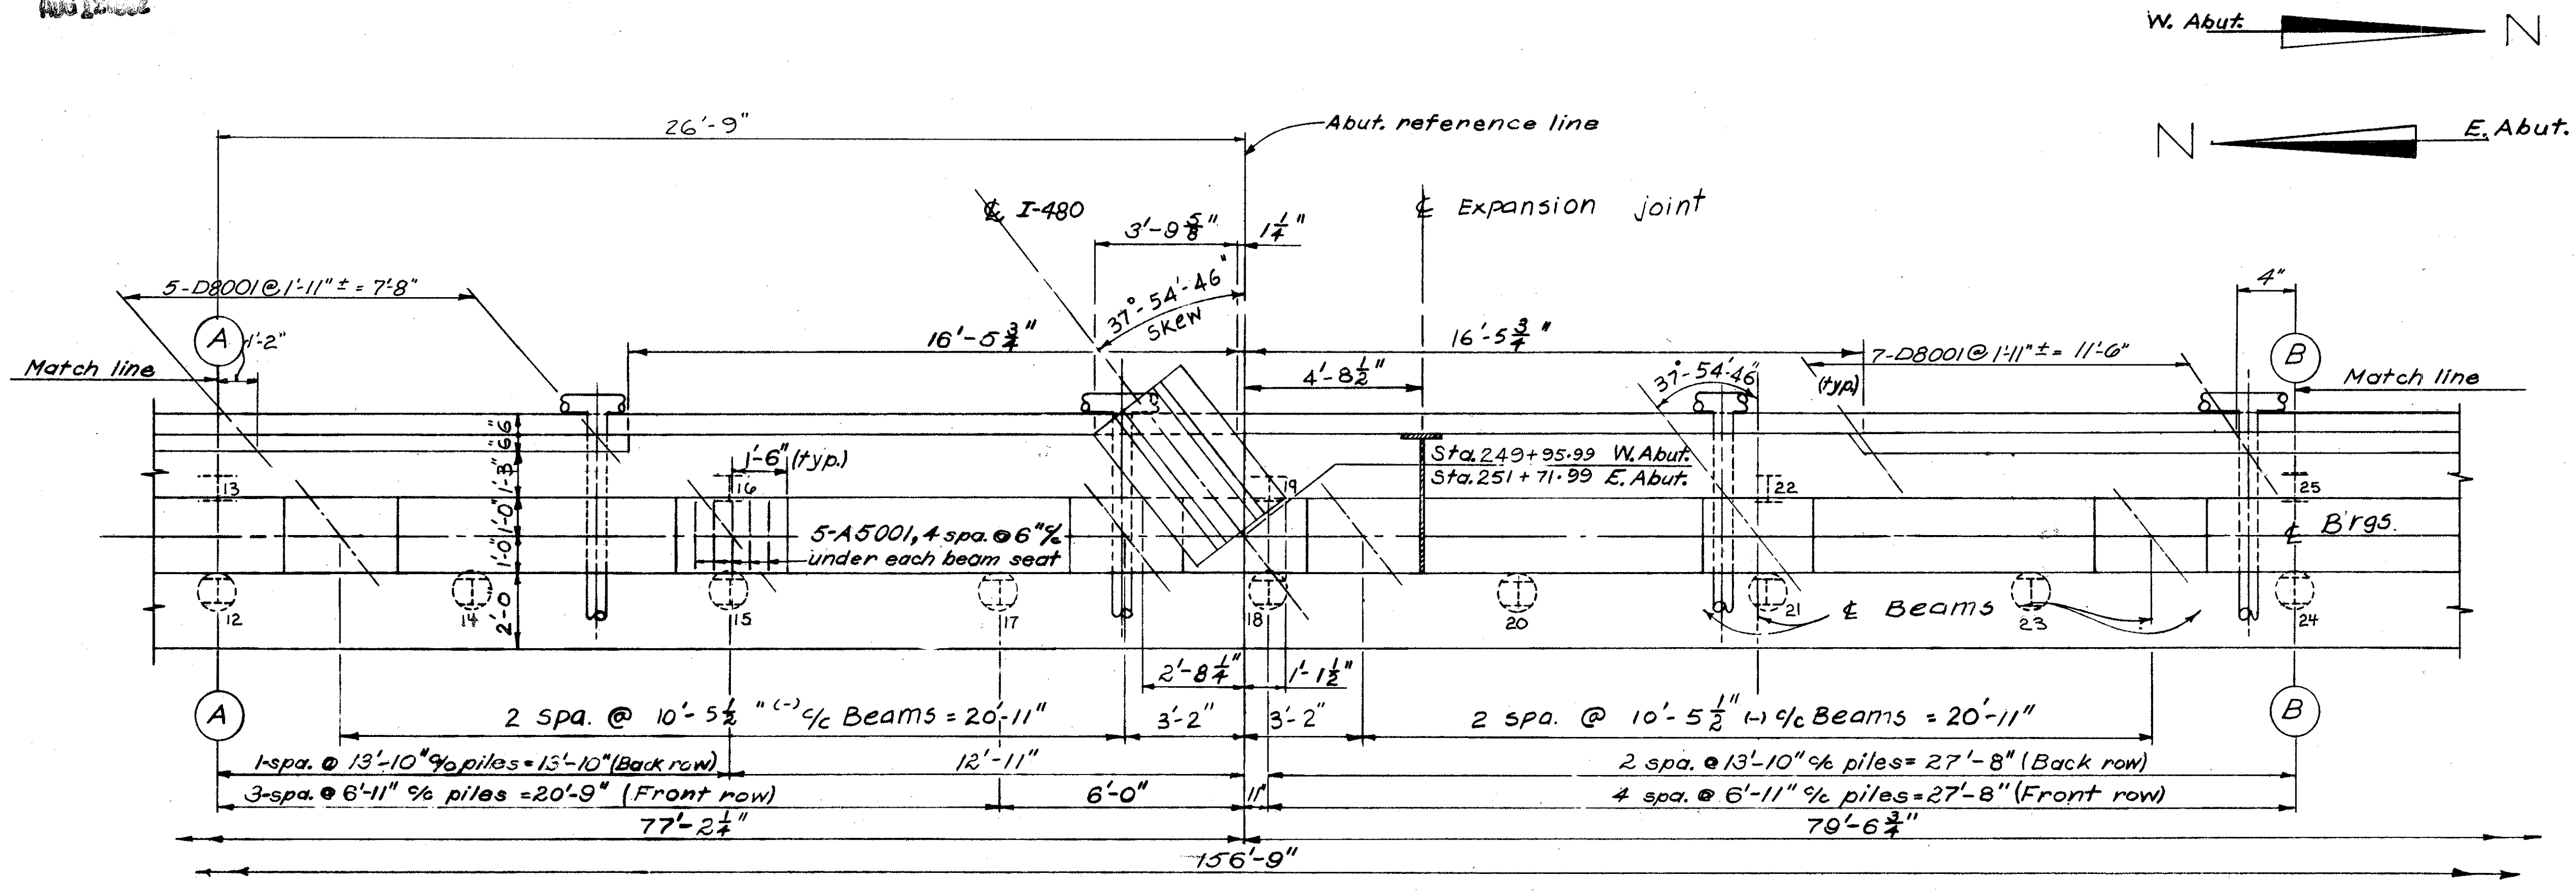 W. Abut.
N
26'-9"
Abut. reference line
N
E. Abut.
℄ I-480
℄ Expansion joint
3'-9 5/8"
1 1/4"
37°-54'-46"
Skew
5-D8001@1'-11"± = 7'-8"
4"
A
1'-2"
16'-5 3/4"
16'-5 3/4"
7-D8001@1'-11"± = 11'-6"
B
Match line
4'-8 1/2"
37°-54'-46"
(typ.)
Match line
6"
6"
1'-3"
1'-0"
1'-0"
2'-0"
1'-6" (typ.)
Sta. 249+95.99 W. Abut.
Sta. 251+71.99 E. Abut.
13
16
19
22
25
5-A5001, 4 spa. @ 6" c/c
under each beam seat
℄ Brgs.
12
14
15
17
18
20
21
℄ Beams
23
24
2'-8 1/4"
1'-1 1/2"
A
2 spa. @ 10'-5 1/2" (-) c/c Beams = 20'-11"
3'-2"
3'-2"
2 spa. @ 10'-5 1/2" (-) c/c Beams = 20'-11"
B
1-spa. @ 13'-10" c/c piles = 13'-10" (Back row)
12'-11"
2 spa. @ 13'-10" c/c piles = 27'-8" (Back row)
3-spa. @ 6'-11" c/c piles = 20'-9" (Front row)
6'-0"
11"
4 spa. @ 6'-11" c/c piles = 27'-8" (Front row)
77'-2 1/4"
79'-6 3/4"
156'-9"